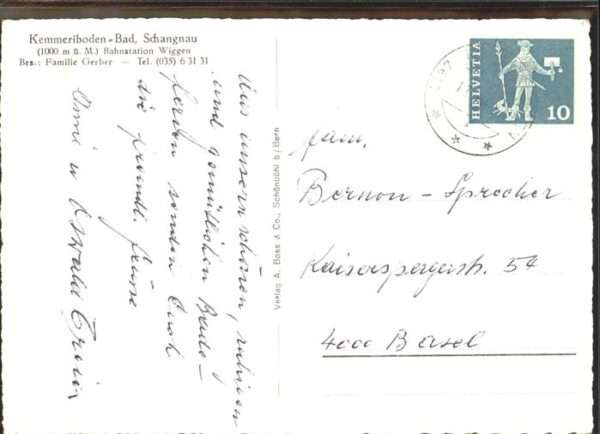 Kemmeriboden-Bad, Schangnau
(1000 m ü. M.) Bahnstation Wiggen
Bes.: Familie Gerber — Tel. (035) 6 31 31
Aus unsern schönen, ruhigen
und gemütlichen Bade-
ferien senden Euch
die freundl. Grüsse
u Oswald
Verlag A. Boss & Co., Schönbühl b/Bern
HELVETIA
10
Fam.
Bernon - Sprecher
Kaiserspergerstr. 54
4000 Basel